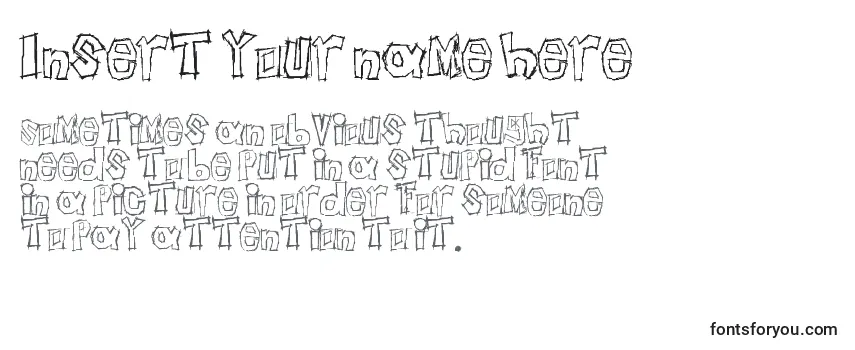 Insert Your name here
someTimes an obvious Thought
needs To be puT in a sTupid fonT
in a picTure in order for someone
To pay aTTenTion To iT.
fontsforyou.com